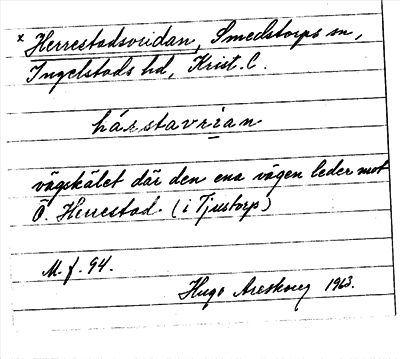 x Herrestadsvridan, Smedstorps sn,
Ingelstads hd, Krist. C.
härstavrian
vägskälet där den ena vägen leder mot
Ö. Herrestad. (i Tjustorp)
M. f. 94.
Hugo Areskoug 1963.